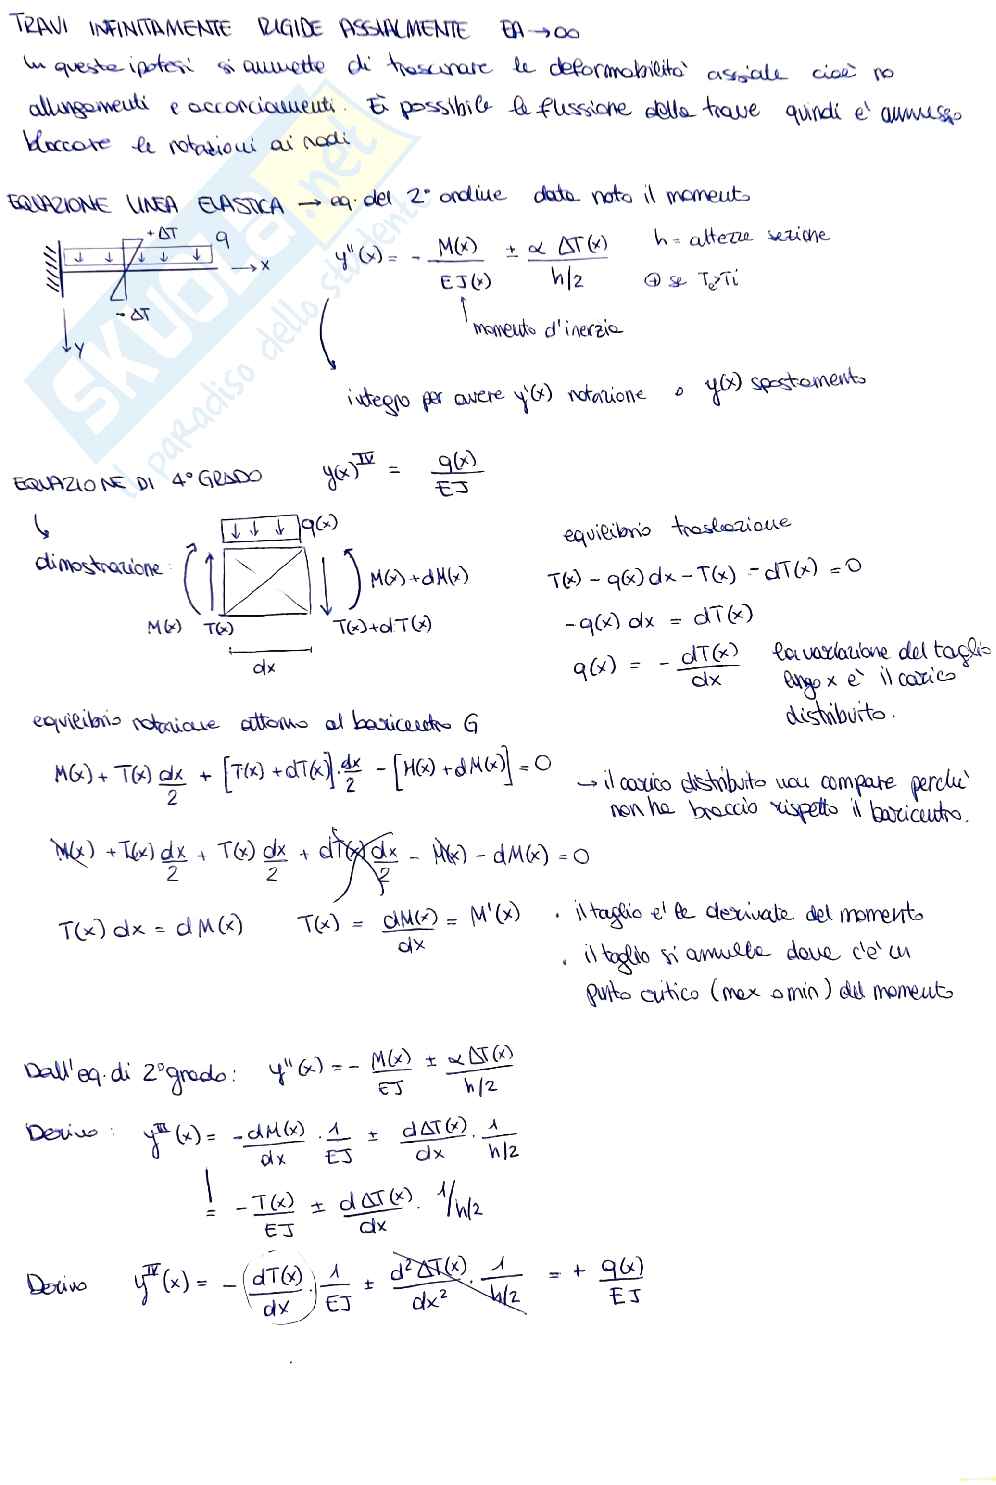 TRAVI INFINITAMENTE RIGIDE ASSIALMENTE EA→∞
In queste ipotesi si ammette di trascurare la deformabilità assiale cioè no
allungamenti e accorciamenti. È possibile la flessione della trave quindi è ammesso
bloccare le rotazioni ai nodi
EQUAZIONE LINEA ELASTICA → eq. del 2° ordine data noto il momento
+ΔT q
→x
-ΔT
y
y''(x) = - M(x)/EJ(x) ± α ΔT(x)/h/2
h = altezza sezione
⊕ se Te>Ti
momento d'inerzia
integro per avere y'(x) rotazione o y(x) spostamento
EQUAZIONE DI 4° GRADO y(x)^IV = q(x)/EJ
dimostrazione:
q(x)
M(x) T(x) T(x)+dT(x) M(x)+dM(x)
dx
equilibrio traslazione
T(x) - q(x) dx - T(x) - dT(x) = 0
-q(x) dx = dT(x)
q(x) = - dT(x)/dx la variazione del taglio
lungo x è il carico
distribuito.
equilibrio rotazione attorno al baricentro G
M(x) + T(x) dx/2 + [T(x)+dT(x)]·dx/2 - [M(x)+dM(x)] = 0
→ il carico distribuito non compare perchè
non ha braccio rispetto il baricentro.
M(x) + T(x) dx/2 + T(x) dx/2 + dT(x) dx/2 - M(x) - dM(x) = 0
T(x) dx = dM(x) T(x) = dM(x)/dx = M'(x)
· il taglio è la derivata del momento
· il taglio si annulla dove c'è un
punto critico (max o min) del momento
Dall'eq. di 2° grado: y''(x) = - M(x)/EJ ± αΔT(x)/h/2
Derivo: y^III(x) = -dM(x)/dx · 1/EJ ± dΔT(x)/dx · 1/h/2
= -T(x)/EJ ± dΔT(x)/dx · 1/h/2
Derivo y^IV(x) = -(dT(x)/dx)· 1/EJ ± d²ΔT(x)/dx² · 1/h/2 = + q(x)/EJ
SKUOLA.net
il paradiso dello studente